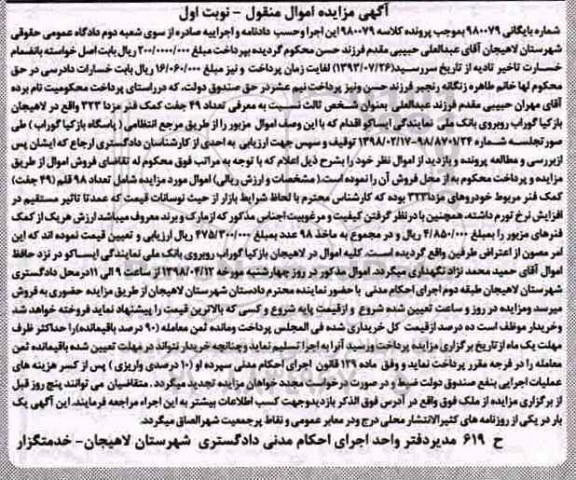 آگهی مزایده اموال منقول - نوبت اول
شماره بایگانی ۹۸۰۰۷۹ بموجب پرونده کلاسه ۹۸۰۰۷۹ این اجرا وحسب دادنامه و اجراییه صادره از سوی شعبه دوم دادگاه عمومی حقوقی
شهرستان لاهیجان آقای عبدالعلی حبیبی مقدم فرزند حسن محکوم گردیده بپرداخت مبلغ ۲۰۰/۰۰۰/۰۰۰ ریال بابت اصل خواسته بانضمام
خسارت تاخیر تادیه از تاریخ سررسید(۱۳۹۳/۰۷/۲۶) لغایت زمان پرداخت و نیز مبلغ ۱۶/۰۶۰/۰۰۰ ریال بابت خسارات دادرسی در حق
محکوم لها خانم طاهره زنگانه رنجبر فرزند حسن ونیز پرداخت نیم عشر در حق صندوق دولت، که درراستای پرداخت محکومیت نام برده
آقای مهران حبیبی مقدم فرزند عبدالعلی بعنوان شخص ثالث نسبت به معرفی تعداد ۴۹ جفت کمک فنر مزدا ۳۲۳ واقع در لاهیجان
بازکیا گوراب روبروی بانک ملی نمایندگی ایساکو اقدام که با این وصف اموال مزبور را از طریق مرجع انتظامی ( پاسگاه بازکیا گوراب ) طی
صورتجلسه شماره ۹۸/۸۷۰۱/۲۴-۱۳۹۸/۰۲/۱۷ توقیف و سپس جهت ارزیابی به احدی از کارشناسان دادگستری ارجاع که ایشان پس
ازبررسی و مطالعه پرونده و بازدید از اموال نظر خود را بشرح ذیل اعلام که با توجه به مراتب فوق محکوم له تقاضای فروش اموال از طریق
مزایده و پرداخت محکوم به از محل فروش آن را نموده است.( مشخصات و ارزش ریالی) اموال مورد مزایده شامل تعداد ۹۸ قلم (۴۹ جفت)
کمک فنر مربوط خودروهای مزدا۳۲۳ بوده که کارشناس محترم با لحاظ شرایط بازار از حیث نوسانات قیمت که عمدتا تاثیر مستقیم در
افزایش نرخ تورم داشته، همچنین با درنظر گرفتن کیفیت و مرغوبیت اجناس مذکور که ازمارک و برند معروف میباشد ارزش هریک از کمک
فنرهای مزبور را بمبلغ ۴/۸۵۰/۰۰۰ ریال و در مجموع به ماخذ ۹۸ عدد بمبلغ ۴۷۵/۳۰۰/۰۰۰ ریال ارزیابی و تعیین قیمت نموده اند که این
امر مصون از اعتراض طرفین واقع گردیده است. کلیه اموال در لاهیجان بازکیا گوراب روبروی بانک ملی نمایندگی ایساکو در نزد حافظ
اموال آقای حمید محمد نژاد نگهداری میگردد. اموال مذکور در روز چهارشنبه مورخه ۱۳۹۸/۰۴/۱۲ از ساعت ۹ الی ۱۱ درمحل دادگستری
شهرستان لاهیجان طبقه دوم اجرای احکام مدنی با حضور نماینده محترم دادستان شهرستان لاهیجان از طریق مزایده حضوری به فروش
میرسد ومزایده در روز و ساعت تعیین شده شروع و ازقیمت پایه شروع و کسی که بالاترین قیمت را پیشنهاد نماید فروخته خواهد شد
وخریدار موظف است ده درصد ازقیمت کل خریداری شده فی المجلس پرداخت ومانده ثمن معامله (۹۰ درصد باقیمانده)را حداکثر ظرف
مهلت یک ماه از تاریخ برگزاری مزایده پرداخت ورسید آنرا به اجرا تسلیم نماید و چنانچه خریدار نتواند در مهلت تعیین شده باقیمانده ثمن
معامله را در فرجه مقرر پرداخت نماید و وفق ماده ۱۲۹ قانون اجرای احکام مدنی سپرده او (۱۰ درصدی واریزی ) پس از کسر هزینه های
عملیات اجرایی بنفع صندوق دولت ضبط و در صورت درخواست مجدد خواهان مزایده تجدید میگردد . متقاضیان می توانند پنج روز قبل
از برگزاری مزایده از ملک فوق واقع در آدرس فوق الذکر بازدیدوجهت کسب اطلاعات بیشتر به این اجراء مراجعه فرمایند. این آگهی یک
بار در یکی از روزنامه های کثیرالانتشار محلی درج ودر معابر عمومی و نقاط پرجمعیت شهرالصاق میگردد.
ح ۶۱۹ مدیردفتر واحد اجرای احکام مدنی دادگستری شهرستان لاهیجان- خدمتگزار